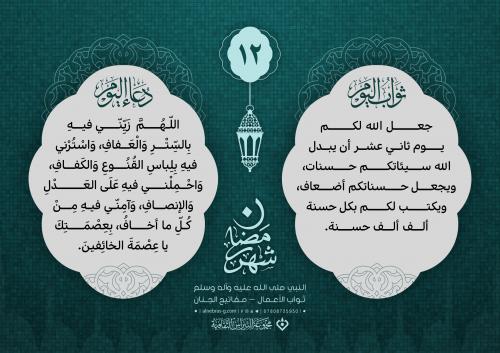 ١٢
ثواب اليوم
جعل الله لكم
يوم ثاني عشر أن يبدل
الله سيئاتكم حسنات،
ويجعل حسناتكم أضعاف،
ويكتب لكم بكل حسنة
ألف ألف حسنة.
دعاء اليوم
اللهُمَّ زَيِّنّي فيهِ
بِالسِّتْرِ وَالعَفافِ، وَاسْتُرْني
فيهِ بِلِباسِ القُنُوعِ وَالكَفافِ،
وَاحْمِلْني فيهِ عَلَى العَدْلِ
وَالإنصافِ، وَآمِنّي فيهِ مِنْ
كُلِّ ما أخافُ، بِعِصْمَتِكَ
يا عِصْمَةَ الخائِفينَ.
شهر رمضان
النبي صلى الله عليه وآله وسلم
ثواب الأعمال – مفاتيح الجنان
alnebras-g.com
07808735950
مجموعة النبراس الثقافية